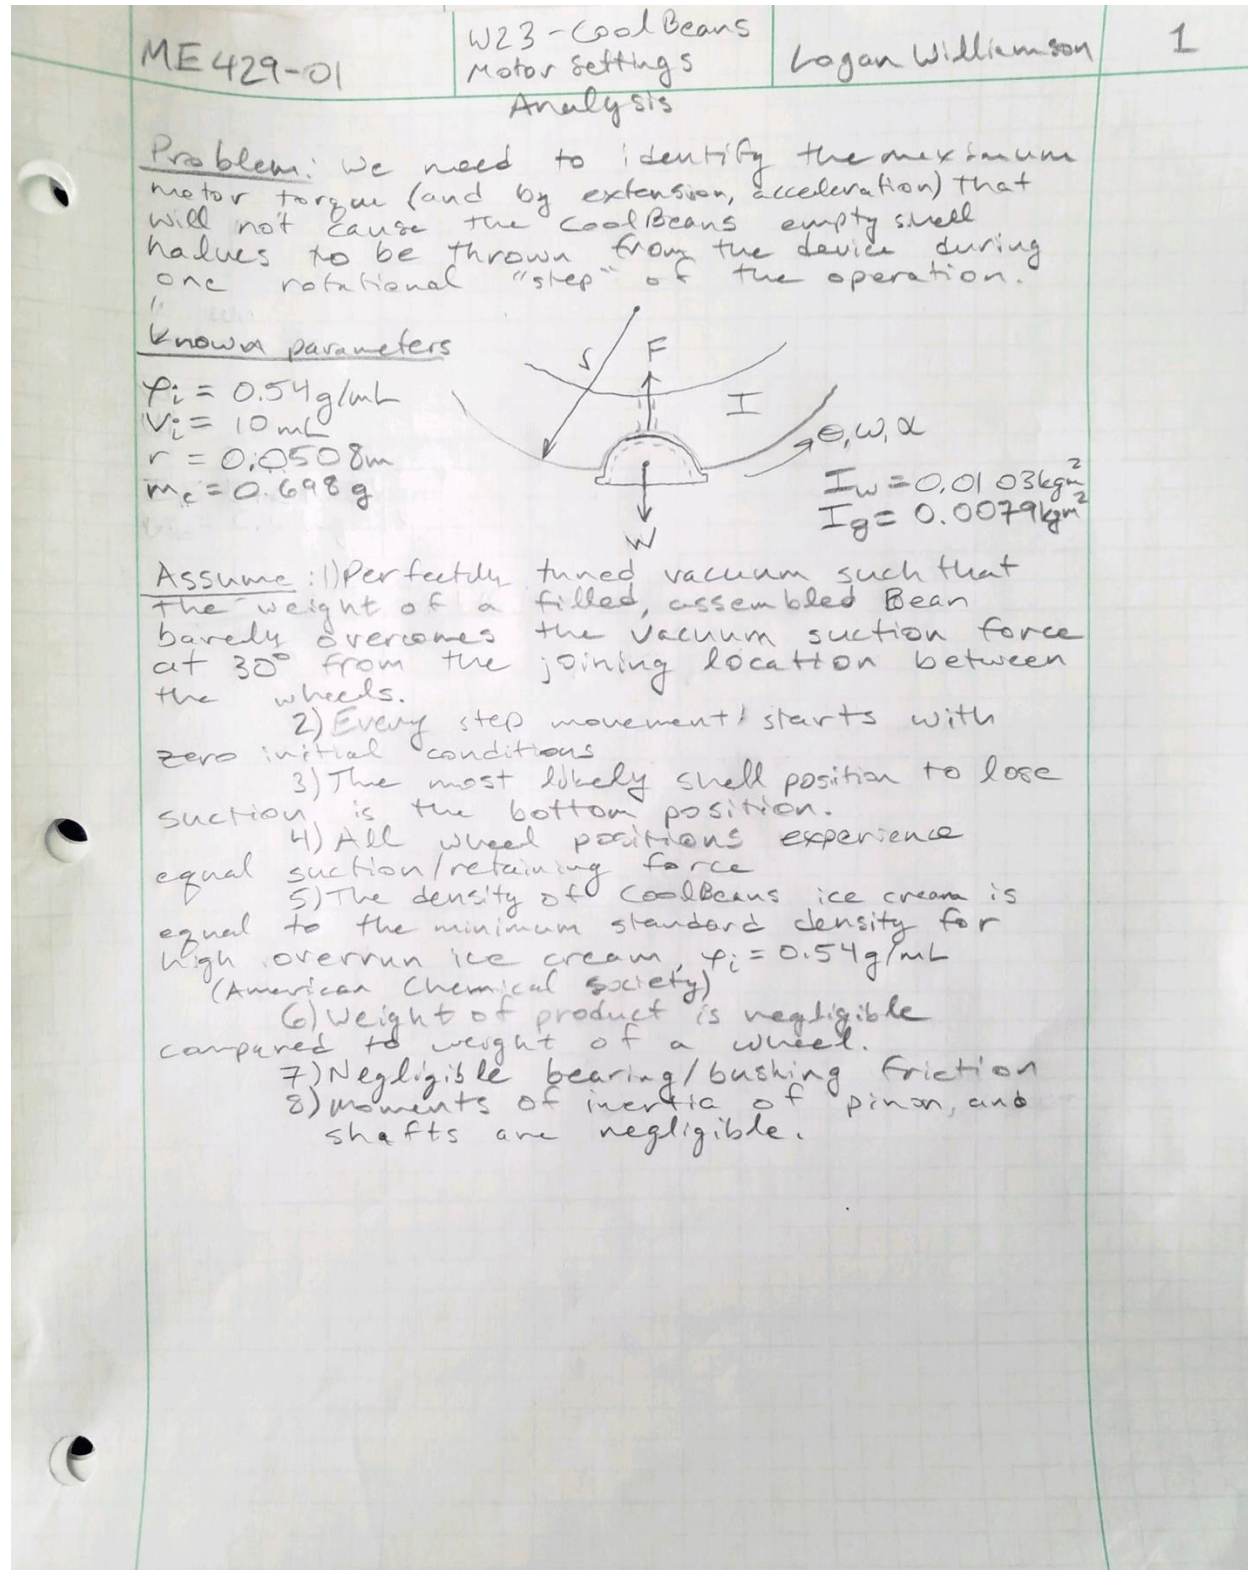 ME 429-01
W23-CoolBeans
Motor Settings
Analysis
Logan Williamson
1
Problem: We need to identify the maximum
motor torque (and by extension, acceleration) that
will not cause the CoolBeans empty shell
halves to be thrown from the device during
one rotational "step" of the operation.
Known parameters
φi = 0.54g/mL
Vi = 10 mL
r = 0.0508m
mc = 0.698g
r
F
I
θ, ω, α
W
Iw = 0.0103kgm²
Ig = 0.0079kgm²
Assume: 1) Perfectly tuned vacuum such that
the weight of a filled, assembled Bean
barely overcomes the vacuum suction force
at 30° from the joining location between
the wheels.
2) Every step movement starts with
zero initial conditions
3) The most likely shell position to lose
suction is the bottom position.
4) All wheel positions experience
equal suction/retaining force
5) The density of CoolBeans ice cream is
equal to the minimum standard density for
high overrun ice cream, φi = 0.54g/mL
(American Chemical Society)
6) Weight of product is negligible
compared to weight of a wheel.
7) Negligible bearing/bushing friction
8) Moments of inertia of pinon, and
shafts are negligible.